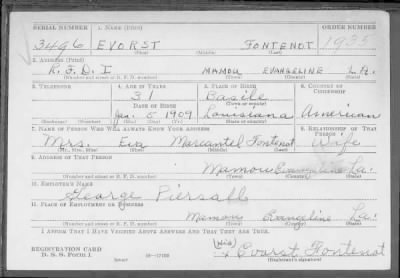 SERIAL NUMBER 1. NAME (Print) ORDER NUMBER
3496 EVORST FONTENOT 1935
(First) (Middle) (Last)
2. ADDRESS (Print)
R.F.D. 1 MAMOU EVANGELINE LA.
(Number and street or R. F. D. number) (Town) (County) (State)
3. TELEPHONE 4. AGE IN YEARS 5. PLACE OF BIRTH 6. COUNTRY OF CITIZENSHIP
31 Basile
DATE OF BIRTH (Town or county)
Jan. 5 1909 Louisiana American
(Exchange) (Number) (Mo.) (Day) (Yr.) (State or country)
7. NAME OF PERSON WHO WILL ALWAYS KNOW YOUR ADDRESS 8. RELATIONSHIP OF THAT PERSON
Mrs. Eva Marcantel Fontenot Wife
(Mr., Mrs., Miss) (First) (Middle) (Last)
9. ADDRESS OF THAT PERSON
Mamou Evangeline La.
(Number and street or R. F. D. number) (Town) (County) (State)
10. EMPLOYER'S NAME
George Piersall
11. PLACE OF EMPLOYMENT OR BUSINESS
Mamou Evangeline La.
(Number and street or R. F. D. number) (Town) (County) (State)
I AFFIRM THAT I HAVE VERIFIED ABOVE ANSWERS AND THAT THEY ARE TRUE.
REGISTRATION CARD (His)
D. S. S. FORM 1 16—17105 x Evorst Fontenot
(Registrant's signature)